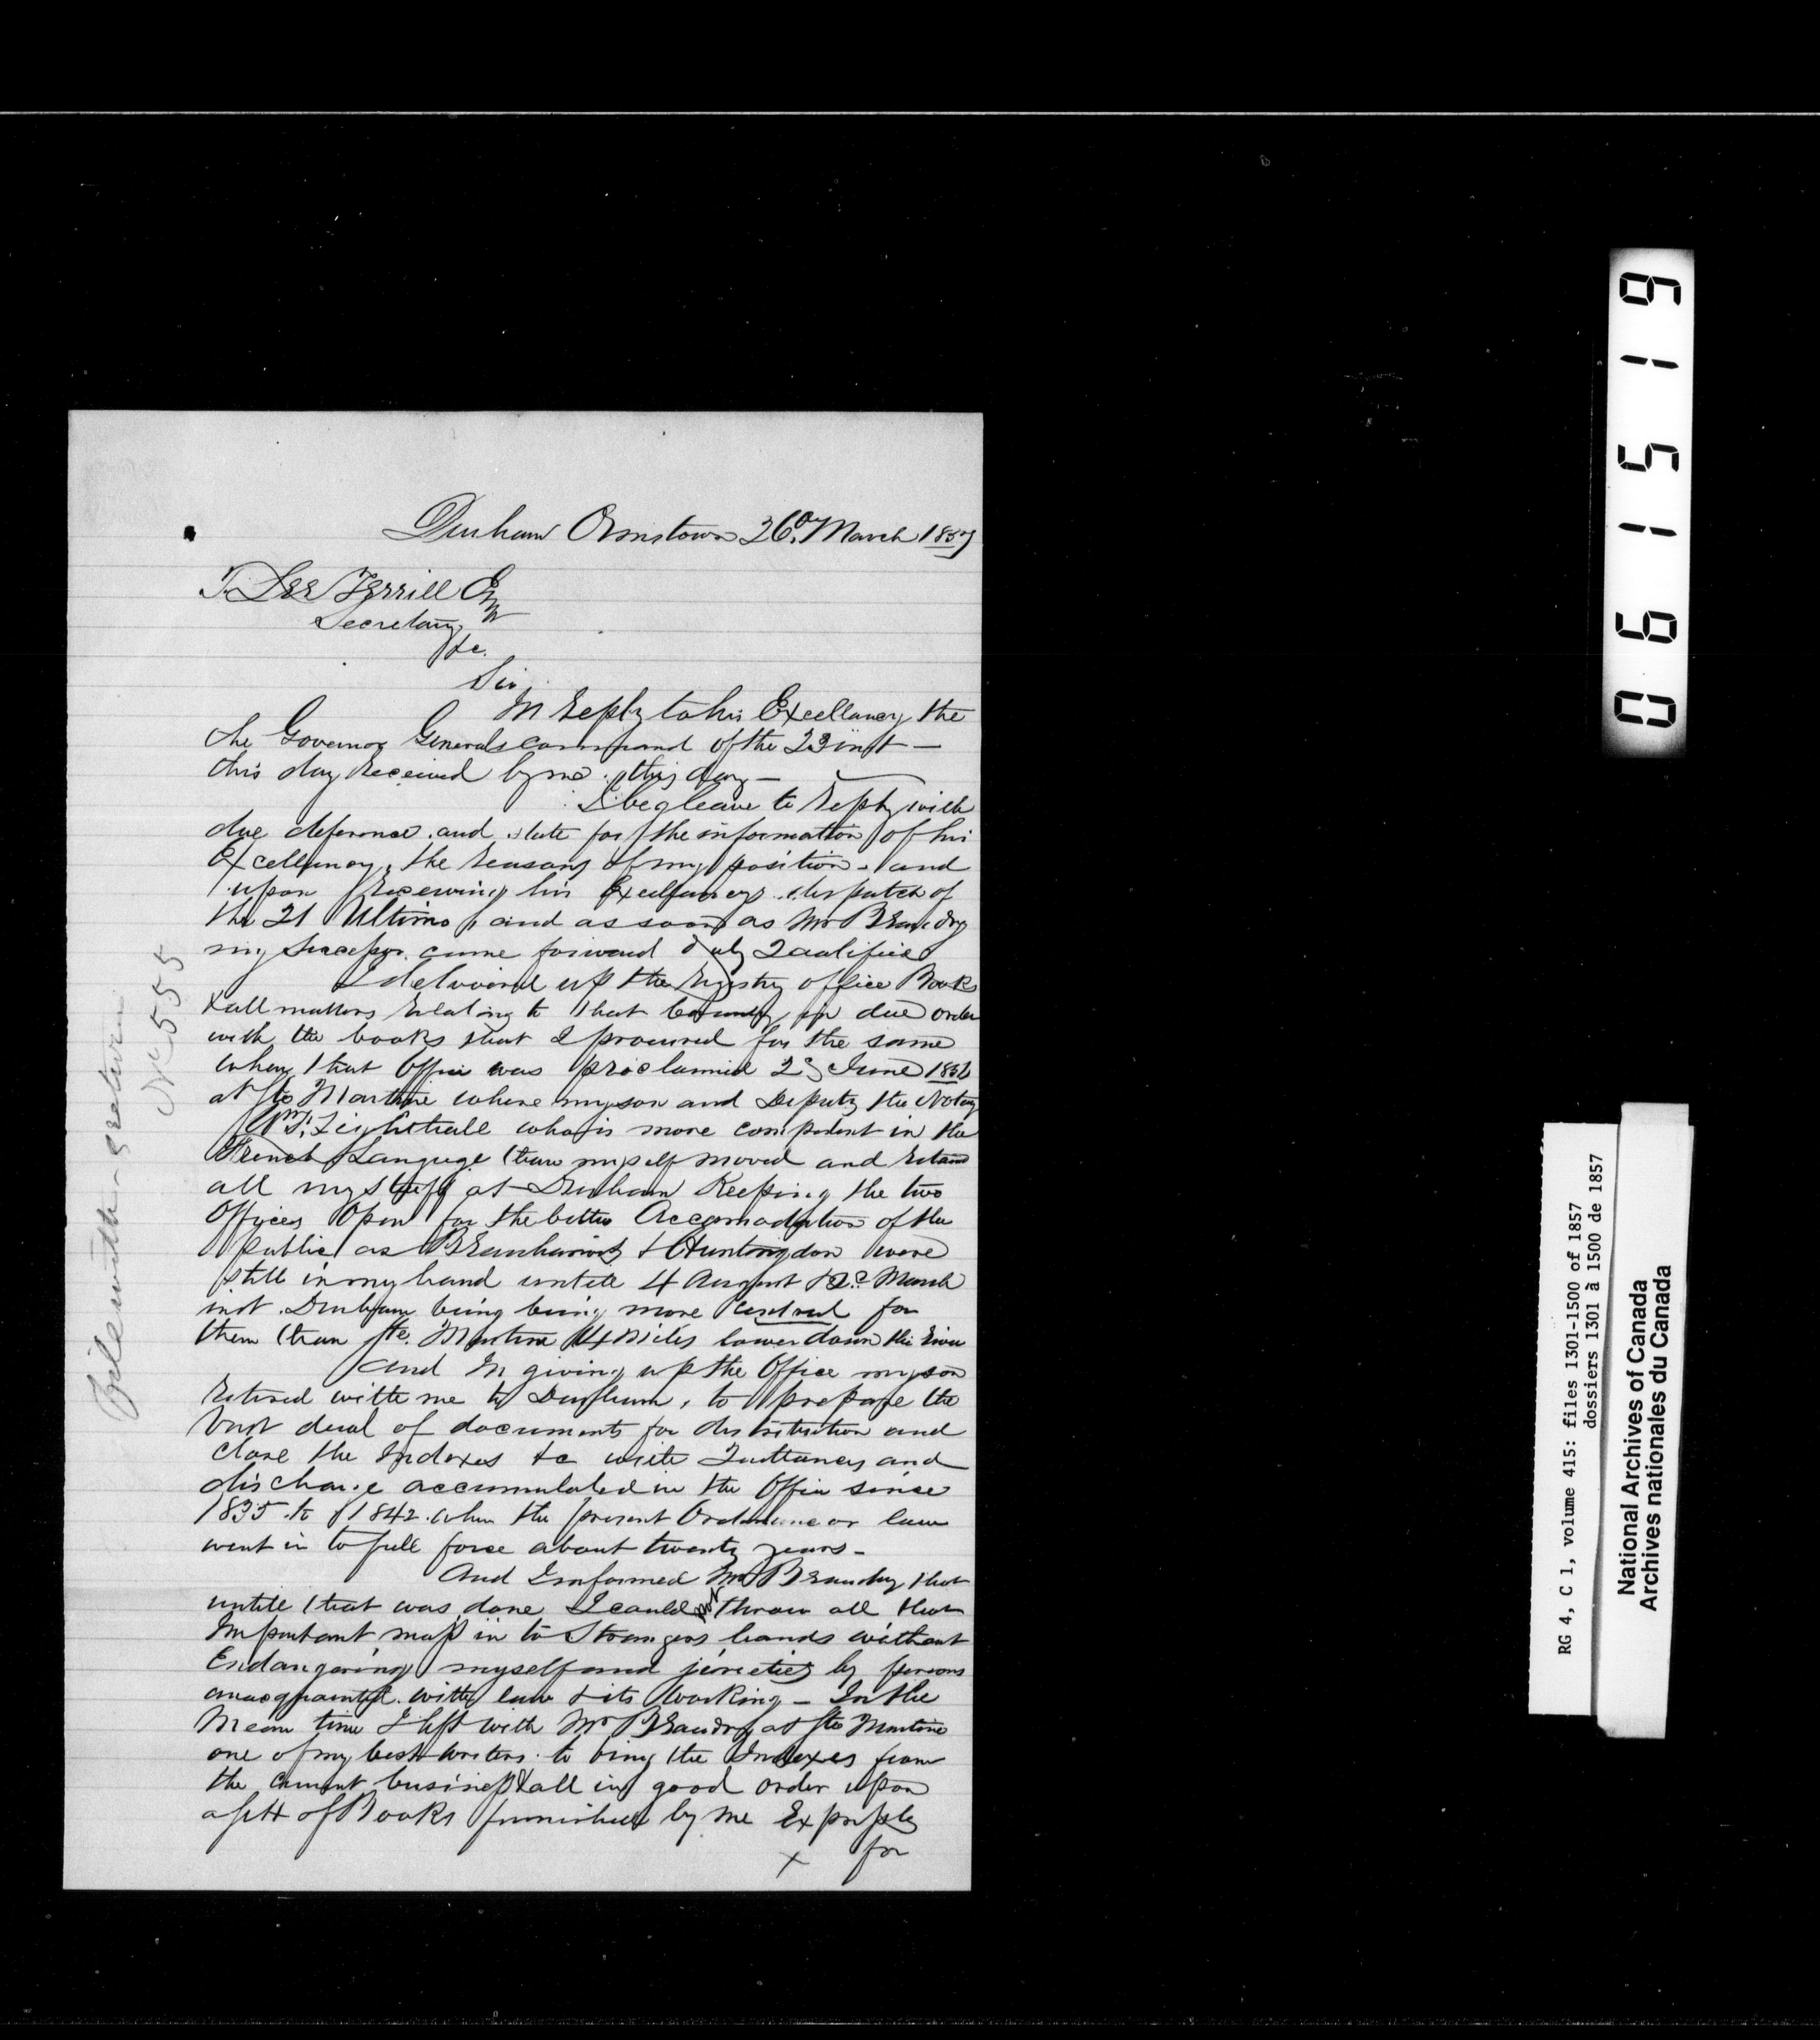 Durham Ormstown 26th March 1857
T. Lee Terrill Esqr
Secretary
&c.
Sir,
In Reply to his Excellancy the
the Governor Generals command of the 23 inst —
this day Received by me this day —
I beg leave to Reply with
due deference and state for the information of his
Excellancy, the reasons of my position - and
upon Receiving his Excellancys dispatch of
the 21 Ultimo, and as soon as Mr Beaudry
my Successor came forward duly Qualified
I deliverd up the Registry office Books
& all matters Relating to that County in due order
with the books that I procured for the same
when that Office was proclamied 23 June 1856
at Ste Martine where my son and Deputy the Notary
Wm F. Lighthall who is more compedent in the
French Languge than myself moved and
all my staff at Durham Keeping the two
Offices Open for the better Accomodation of the
public as Beauharnois & Huntingdon were
still in my hand untill 4 August & March
inst. Durham being being more central for
them than Ste. Martine 14 Miles lower down the River
And In giving up the Office my son
Retired with me to Durham, to prepare the
Vast deal of documents for distribution and
close the Indexes &c with Quittances and
discharge accumulated in the Office since
1835 to 1842 when the present Ordinance or law
went in to full force about twenty years -
And I informed Mr Beaudry that
untill that was done I could not throw all that
Important mass in to Strangers hands without
Endangering myself and sureties by persons
unacquainted with law & its working - In the
Mean time I left with Mr Beaudry at Ste Martine
one of my best writers to bring the Indexes from
the current business & all in good order upon
a sett of Books furnished by me Expressly
x for
File with return
No 555
061519
RG 4, C 1, volume 415: files 1301-1500 of 1857
dossiers 1301 à 1500 de 1857
National Archives of Canada
Archives nationales du Canada